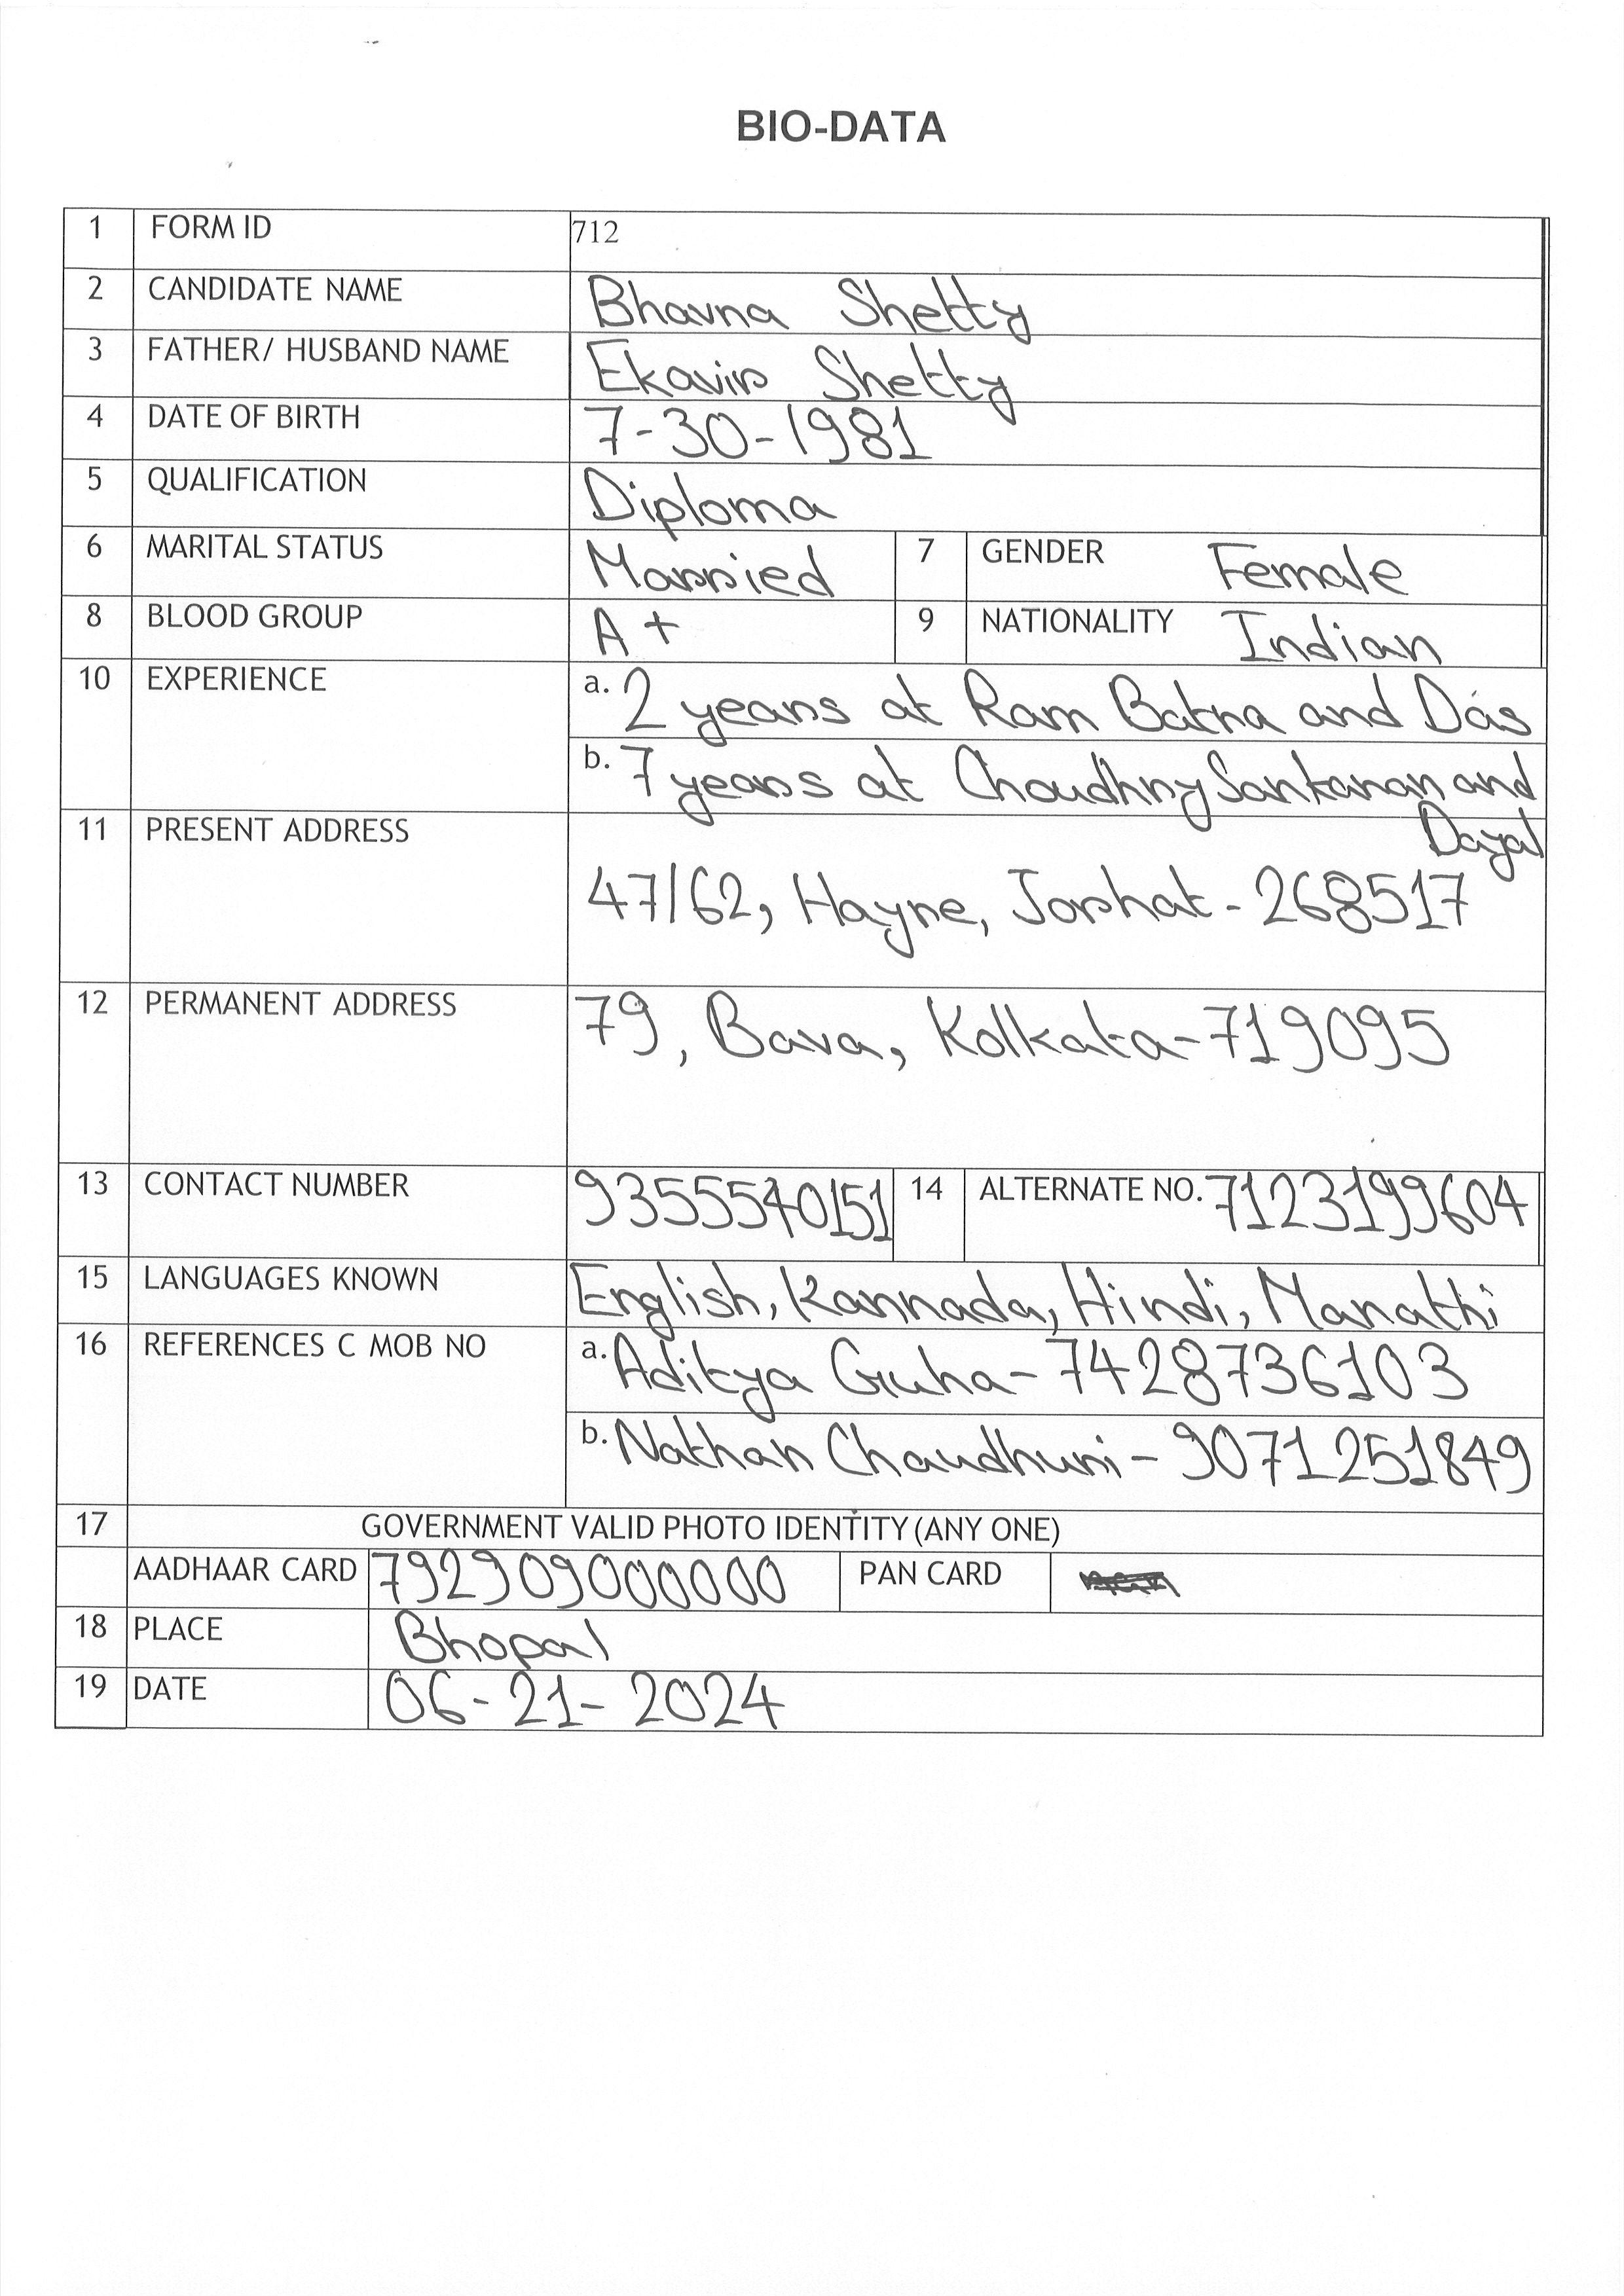 BIO-DATA
1 FORM ID 712
2 CANDIDATE NAME Bhavna Shetty
3 FATHER/ HUSBAND NAME Ekavir Shetty
4 DATE OF BIRTH 7-30-1981
5 QUALIFICATION Diploma
6 MARITAL STATUS Married 7 GENDER Female
8 BLOOD GROUP A+ 9 NATIONALITY Indian
10 EXPERIENCE a. 2 years at Ram Batra and Das
b. 7 years at Choudhry Sankaran and
Dayal
11 PRESENT ADDRESS
47/62, Hayre, Jorhat - 268517
12 PERMANENT ADDRESS 79, Bava, Kolkata-719095
13 CONTACT NUMBER 9355540151 14 ALTERNATE NO. 7123199604
15 LANGUAGES KNOWN English, Kannada, Hindi, Marathi
16 REFERENCES C MOB NO a. Aditya Guha - 7428736103
b. Nathan Chaudhuri - 9071251849
17 GOVERNMENT VALID PHOTO IDENTITY (ANY ONE)
AADHAAR CARD 792909000000 PAN CARD
18 PLACE Bhopal
19 DATE 06-21-2024